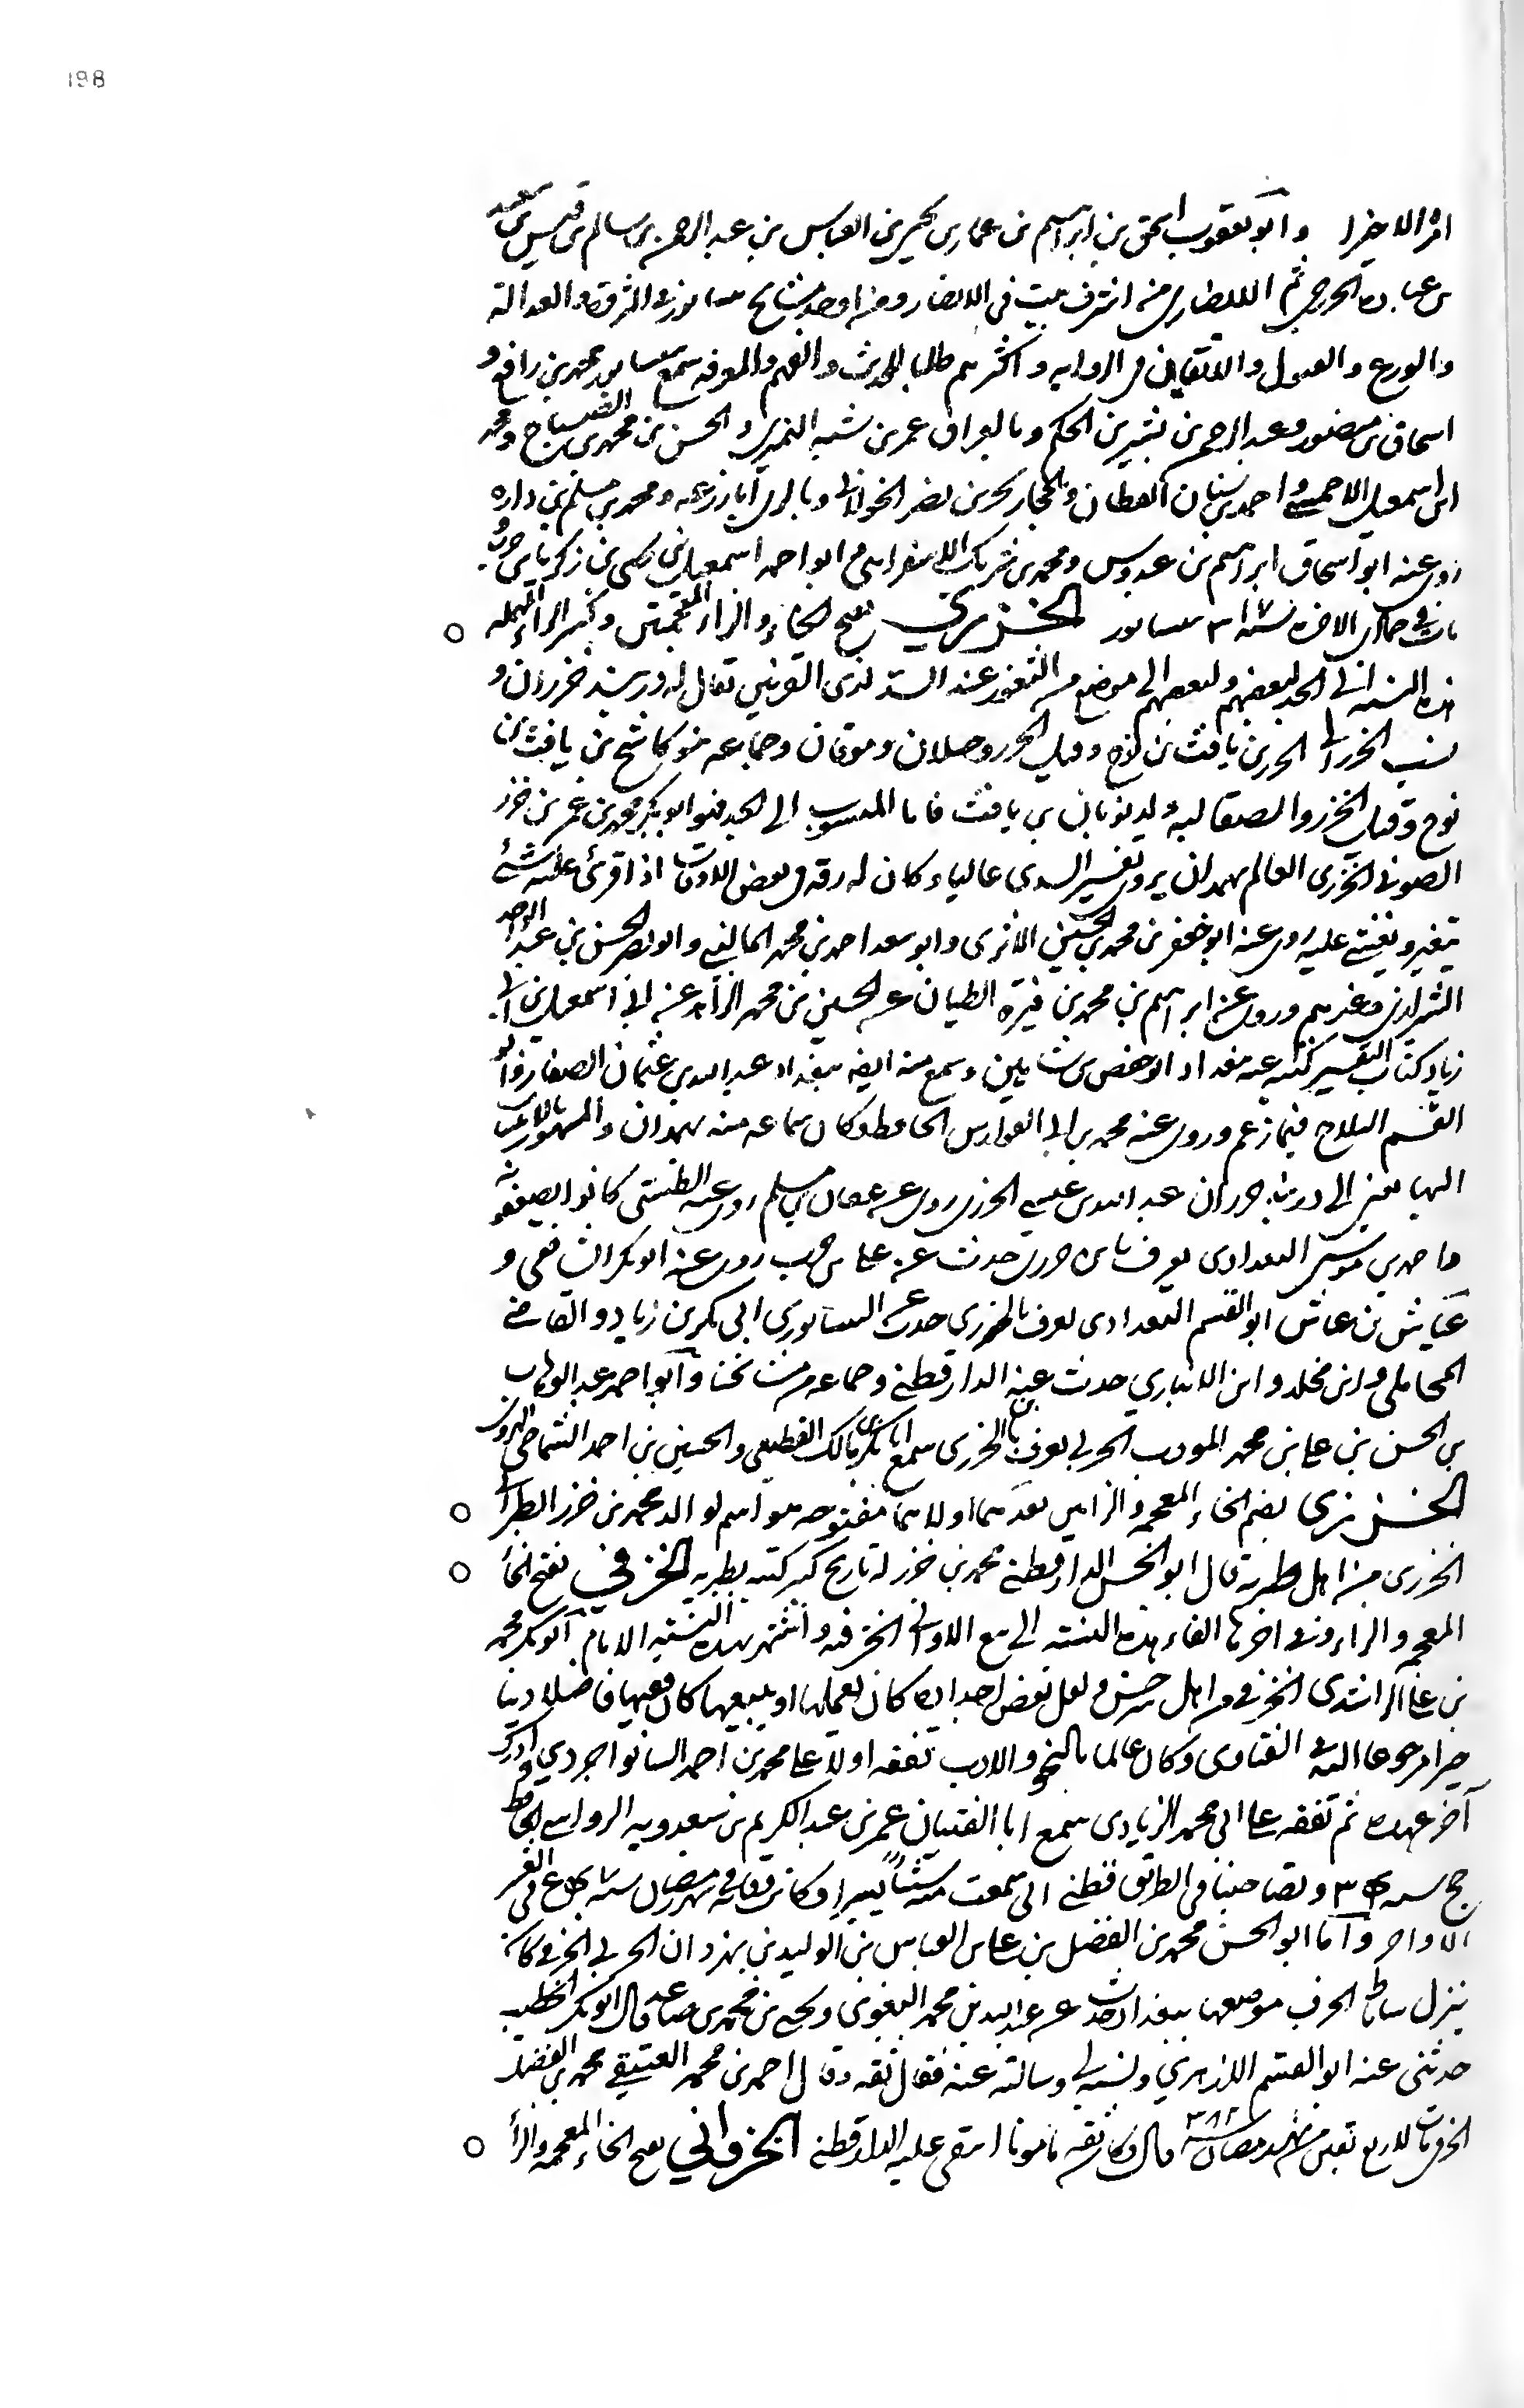 198
اثر الاخيرا وابو يعقوب اسحق بن ابراهيم بن عمار بن يحيى بن العباس بن عبد الرحمن بن سالم بن قيس بن سعد
بن عبادة الخزرجي ثم الانصاري من اشرف بيت في الانصار ومن اوحد مشايخ نيسابور في الثروة والعدالة
والورع والقبول والاتقان في الرواية واكثرهم طلبا للحديث والفهم والمعرفة سمع نيسابور محمد بن رافع و
اسحاق بن منصور وعبد الرحمن بن بشر بن الحكم وبالعراق عمر بن شبه النميري والحسن بن محمد بن الصباح ومحمد
بن اسمعيل الاحمسي واحمد بن سنان القطان وبالحجاز بحر بن نصر الخولاني وبالري ابا زرعه ومحمد بن مسلم بن واره
روى عنه ابو اسحاق ابراهيم بن عبدوس ومحمد بن شريك الاسفرايني وابو احمد اسمعيل بن يحيى بن زكريا بن حرب
مات في جمادى الاخرة سنة ٣١٧ نيسابور الخزري بفتح الخاء والزاء المعجمتين وكسر الراء المهملة
هذه النسبة الى الجد لبعضهم ولبعضهم الى موضع من الثغور عند السد لذي القرنين يقال له دربند خزران و
نسب الخزر الى الخزر بن يافث بن نوح وقيل الخزر وجيلان وموقان وجماعه بنو كاشح بن يافث بن
نوح وقيل الخزر والصقالبة ولد يونان بن يافث فاما المنسوب الى الجد فهو ابو بكر محمد بن عمر بن خزر
الصوفي الخزري العالم بهمدان يروي تفسير السدي عاليا وكان له رقه في بعض الاوقات اذا قرئ عليه شئ
يتغير ويغشى عليه روى عنه ابو جعفر بن محمد بن الحسين الابهري وابو سعد احمد بن محمد الماليني وابو نصر الحسن بن عبد الواحد
الشيرازي وغيرهم وروى عن ابراهيم بن محمد بن فيرة الطيان عن الحسين بن محمد الزاهد عن اسمعيل بن ابي
زياد كتاب التفسير كتب عنه ببغداد ابو حفص بن شاهين وسمع منه ايضا ببغداد عبد الله بن عثمان الصفار وابو
القسم الثلاج فيما زعم وروى عنه محمد بن ابي الفوارس الحافظ وكان سماعه منه بهمدان والمشهور بالانتساب
اليها يعني الى دربند خزران عبد الله بن عيسى الخزري روى عن عفان بن مسلم روى عنه الطستي كانوا يضعفونه
واحمد بن موسى البغدادي يعرف بابن خزري حدث عن علي بن حرب روى عنه ابو بكر الشافعي و
عياش بن عياش ابو القسم البغدادي يعرف بالخزري حدث عن النيسابوري ابي بكر بن زياد والقاضي
المحاملي وابن مخلد وابن الانباري حدث عنه الدارقطني وجماعه من شيوخنا وابو احمد عبد الوهاب
بن الحسن بن علي بن محمد المودب الحربي يعرف بابن الخزري سمع ابا بكر بن مالك القطيعي والحسين بن احمد الشماخي الهروي
الخزري بضم الخاء المعجمة والزاءين بعدهما اولاهما مفتوحة هو اسم لوالد محمد بن خزر الطبراني
الخزري من اهل طبرية قال ابو الحسن الدارقطني محمد بن خزر له تاريخ كبير كتب بطبرية الخزفي بفتح الخاء
المعجمة والزاء وفي اخرها الفاء هذه النسبة الى بيع الاواني الخزفية واشتهر بهذه النسبة الامام ابو بكر محمد
بن علي الراشدي الخزفي من اهل سرخس ولعل بعض اجداده كان يعملها او يبيعها كان فقيها فاضلا دينا
خيرا مرجوعا اليه في الفتاوى وكان عالما بالنحو والادب تفقه اولا على محمد بن احمد السانواجردي وادرك
آخر عهده ثم تفقه على ابي محمد الزيادي سمع ابا الفتيان عمر بن عبد الكريم بن سعدويه الرواسي الحافظ
حج سنة وتصاحبنا في الطريق فظني اني سمعت منه شيئا يسيرا وكانت وفاته في شهر رمضان سنة في العشر
الاواخر واما ابو الحسن محمد بن الفضل بن علي بن العباس بن الوليد بن بهزدان الحربي الخزفي كان
ينزل ساباط الخزف موضعا ببغداد حدث عن عبد الله بن محمد البغوي ويحيى بن محمد بن صاعد قال ابو بكر الخطيب
حدثني عنه ابو القسم الازهري ونسبه لي وسالته عنه فقال ثقه وقال احمد بن محمد العتيقي محمد بن الفضل
الخزفي مات لاربع بقين من شهر رمضان سنة ٣٨٢ قال وكان ثقه مامونا انتقى عليه الدارقطني الخزواني بفتح الخاء المعجمة والزاء